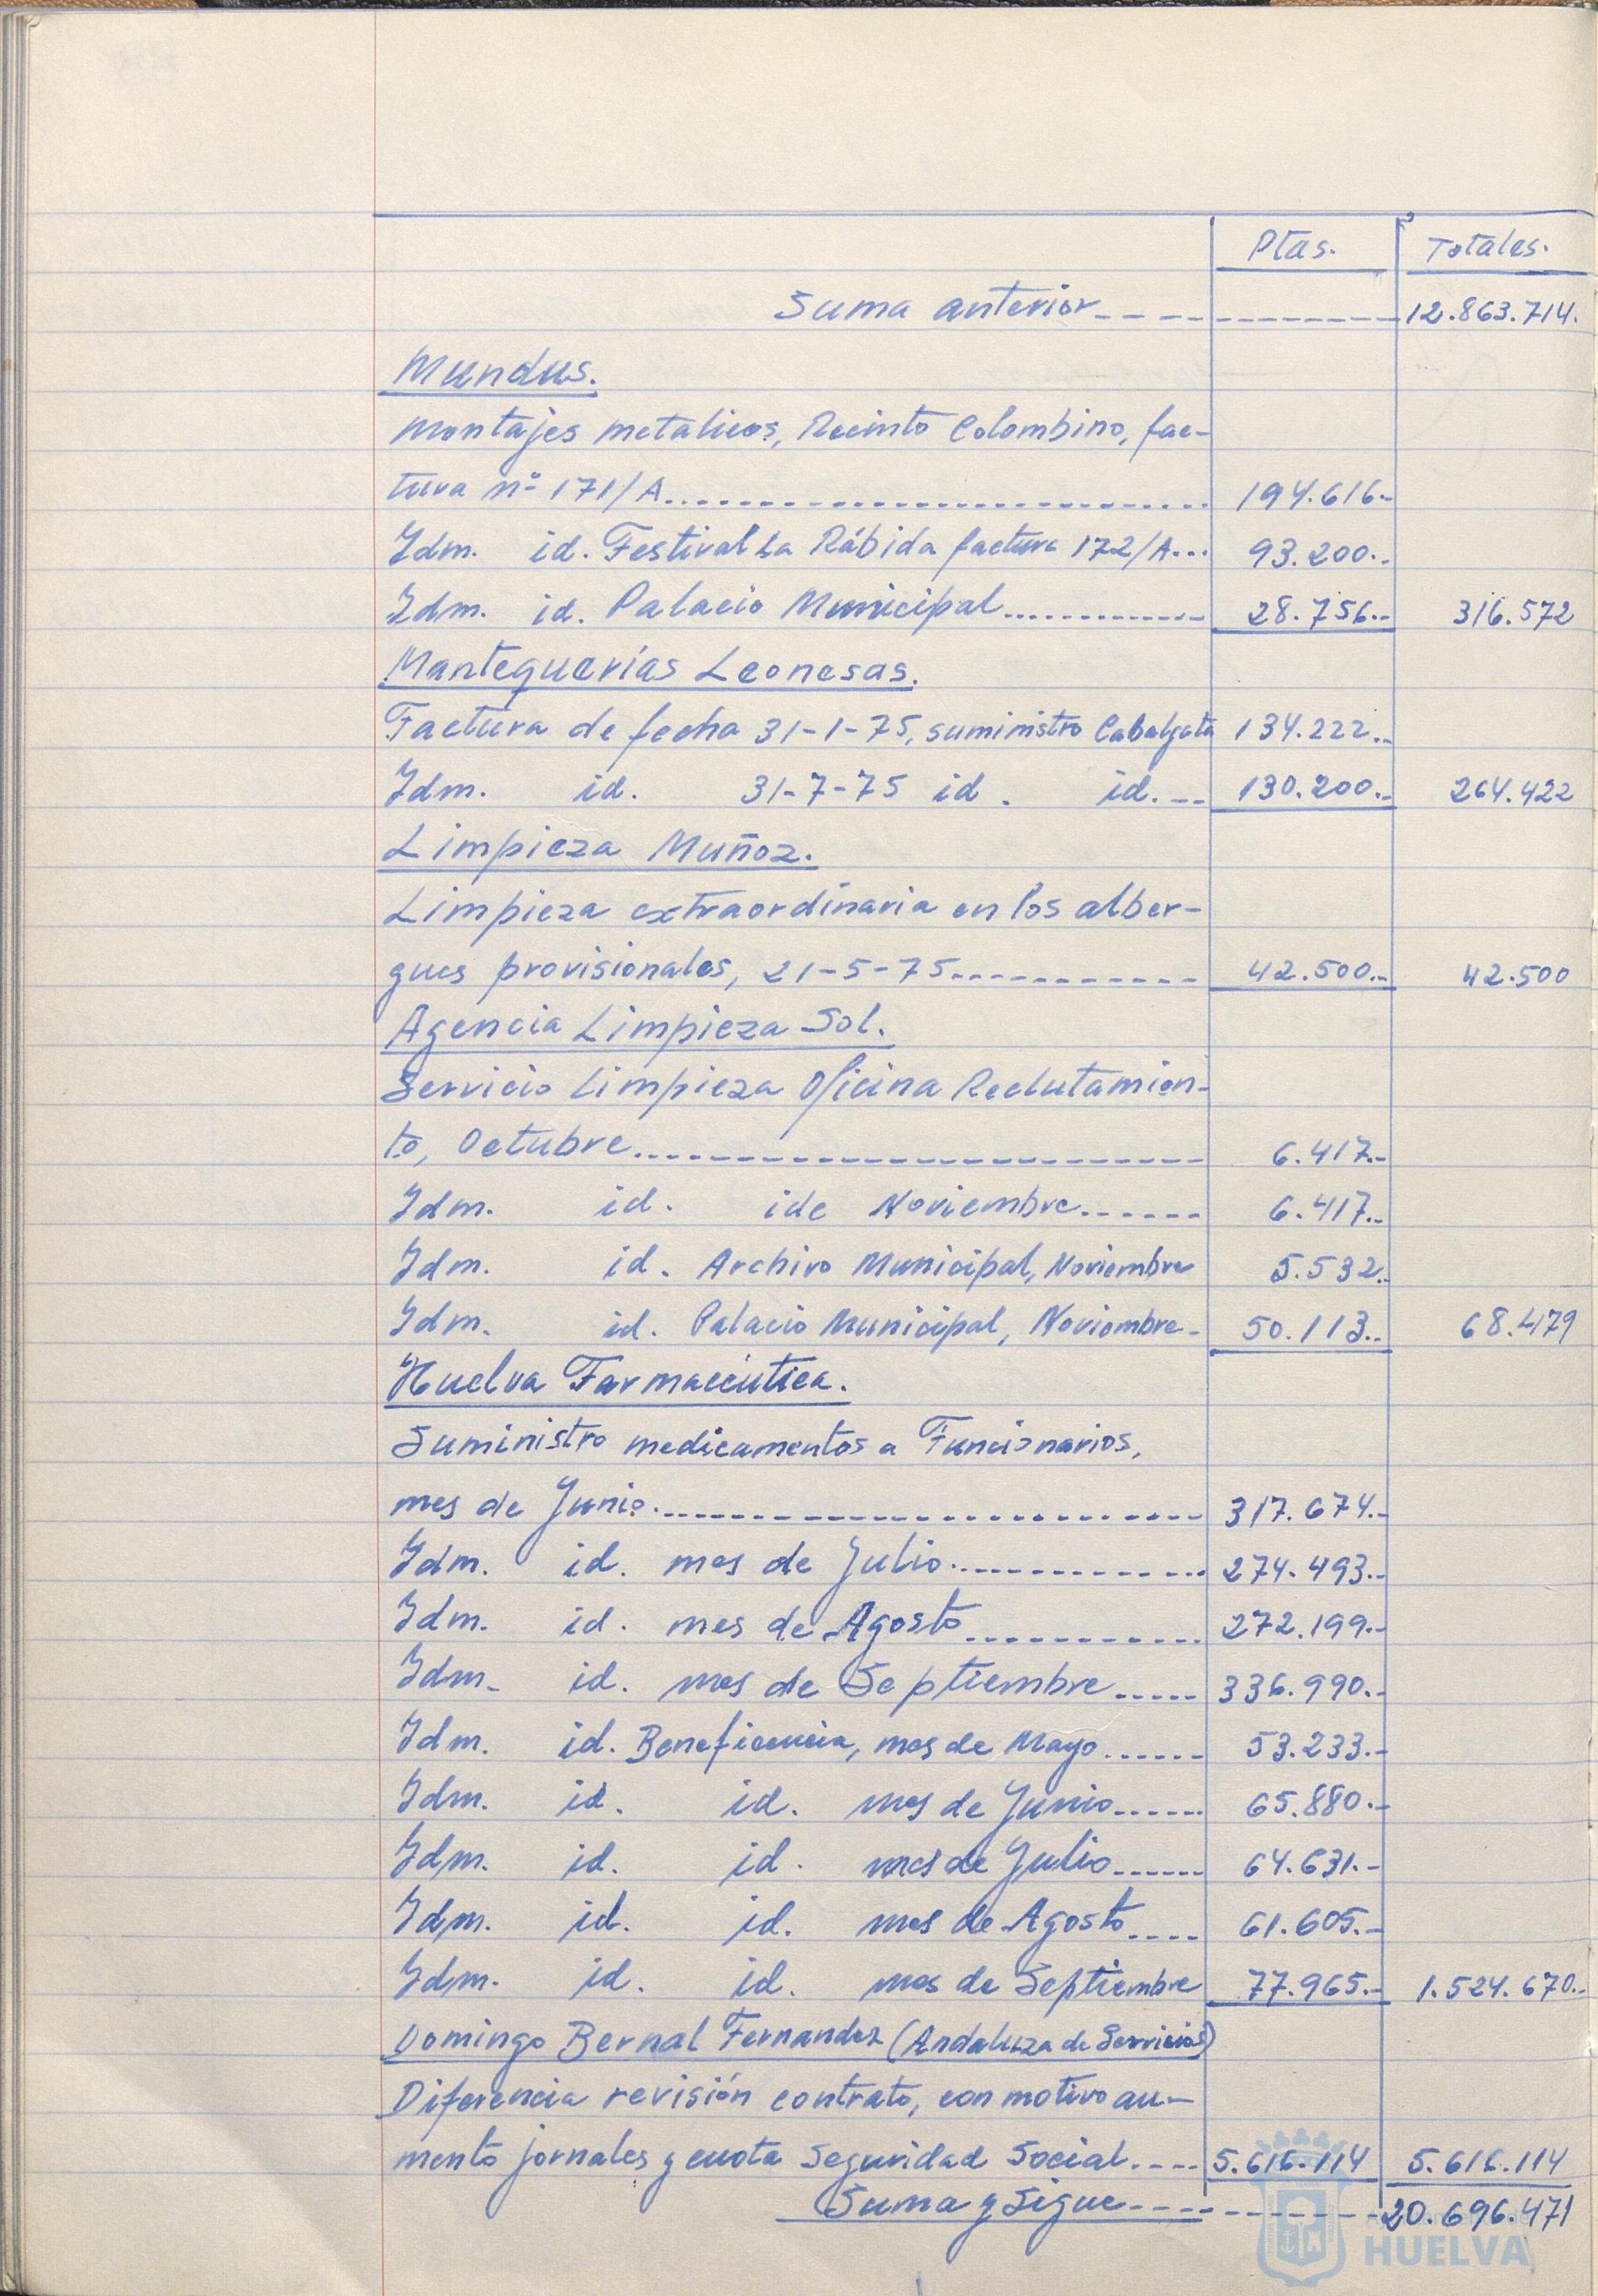 Ptas. Totales.
Suma anterior 12.863.714.
Mundus.
Montajes metalicos, Recinto Colombino, fac-
tura nº 171/A 194.616.-
Idm. id. Festival La Rábida factura 172/A 93.200.-
Idm. id. Palacio Municipal 28.756.- 316.572
Mantequerías Leonesas.
Factura de fecha 31-1-75, suministro Cabalgata 134.222.-
Idm. id. 31-7-75 id. id. 130.200.- 264.422
Limpieza Muñoz.
Limpieza extraordinaria en los alber-
gues provisionales, 21-5-75 42.500.- 42.500
Agencia Limpieza Sol.
Servicio limpieza Oficina Reclutamien-
to, Octubre 6.417.-
Idm. id. ide Noviembre 6.417.-
Idm. id. Archivo Municipal, Noviembre 5.532.-
Idm. id. Palacio Municipal, Noviembre 50.113.- 68.479
Huelva Farmaceútica.
Suministro medicamentos a Funcionarios,
mes de Junio 317.674.-
Idm. id. mes de Julio 274.493.-
Idm. id. mes de Agosto 272.199.-
Idm. id. mes de Septiembre 336.990.-
Idm. id. Beneficencia, mes de Mayo 53.233.-
Idm. id. id. mes de Junio 65.880.-
Idm. id. id. mes de Julio 64.631.-
Idm. id. id. mes de Agosto 61.605.-
Idm. id. id. mes de Septiembre 77.965.- 1.524.670.-
Domingo Bernal Fernandez (Andaluza de Servicios)
Diferencia revisión contrato, con motivo au-
mento jornales y cuota Seguridad Social 5.616.114 5.616.114
Suma y Sigue 20.696.471
HUELVA